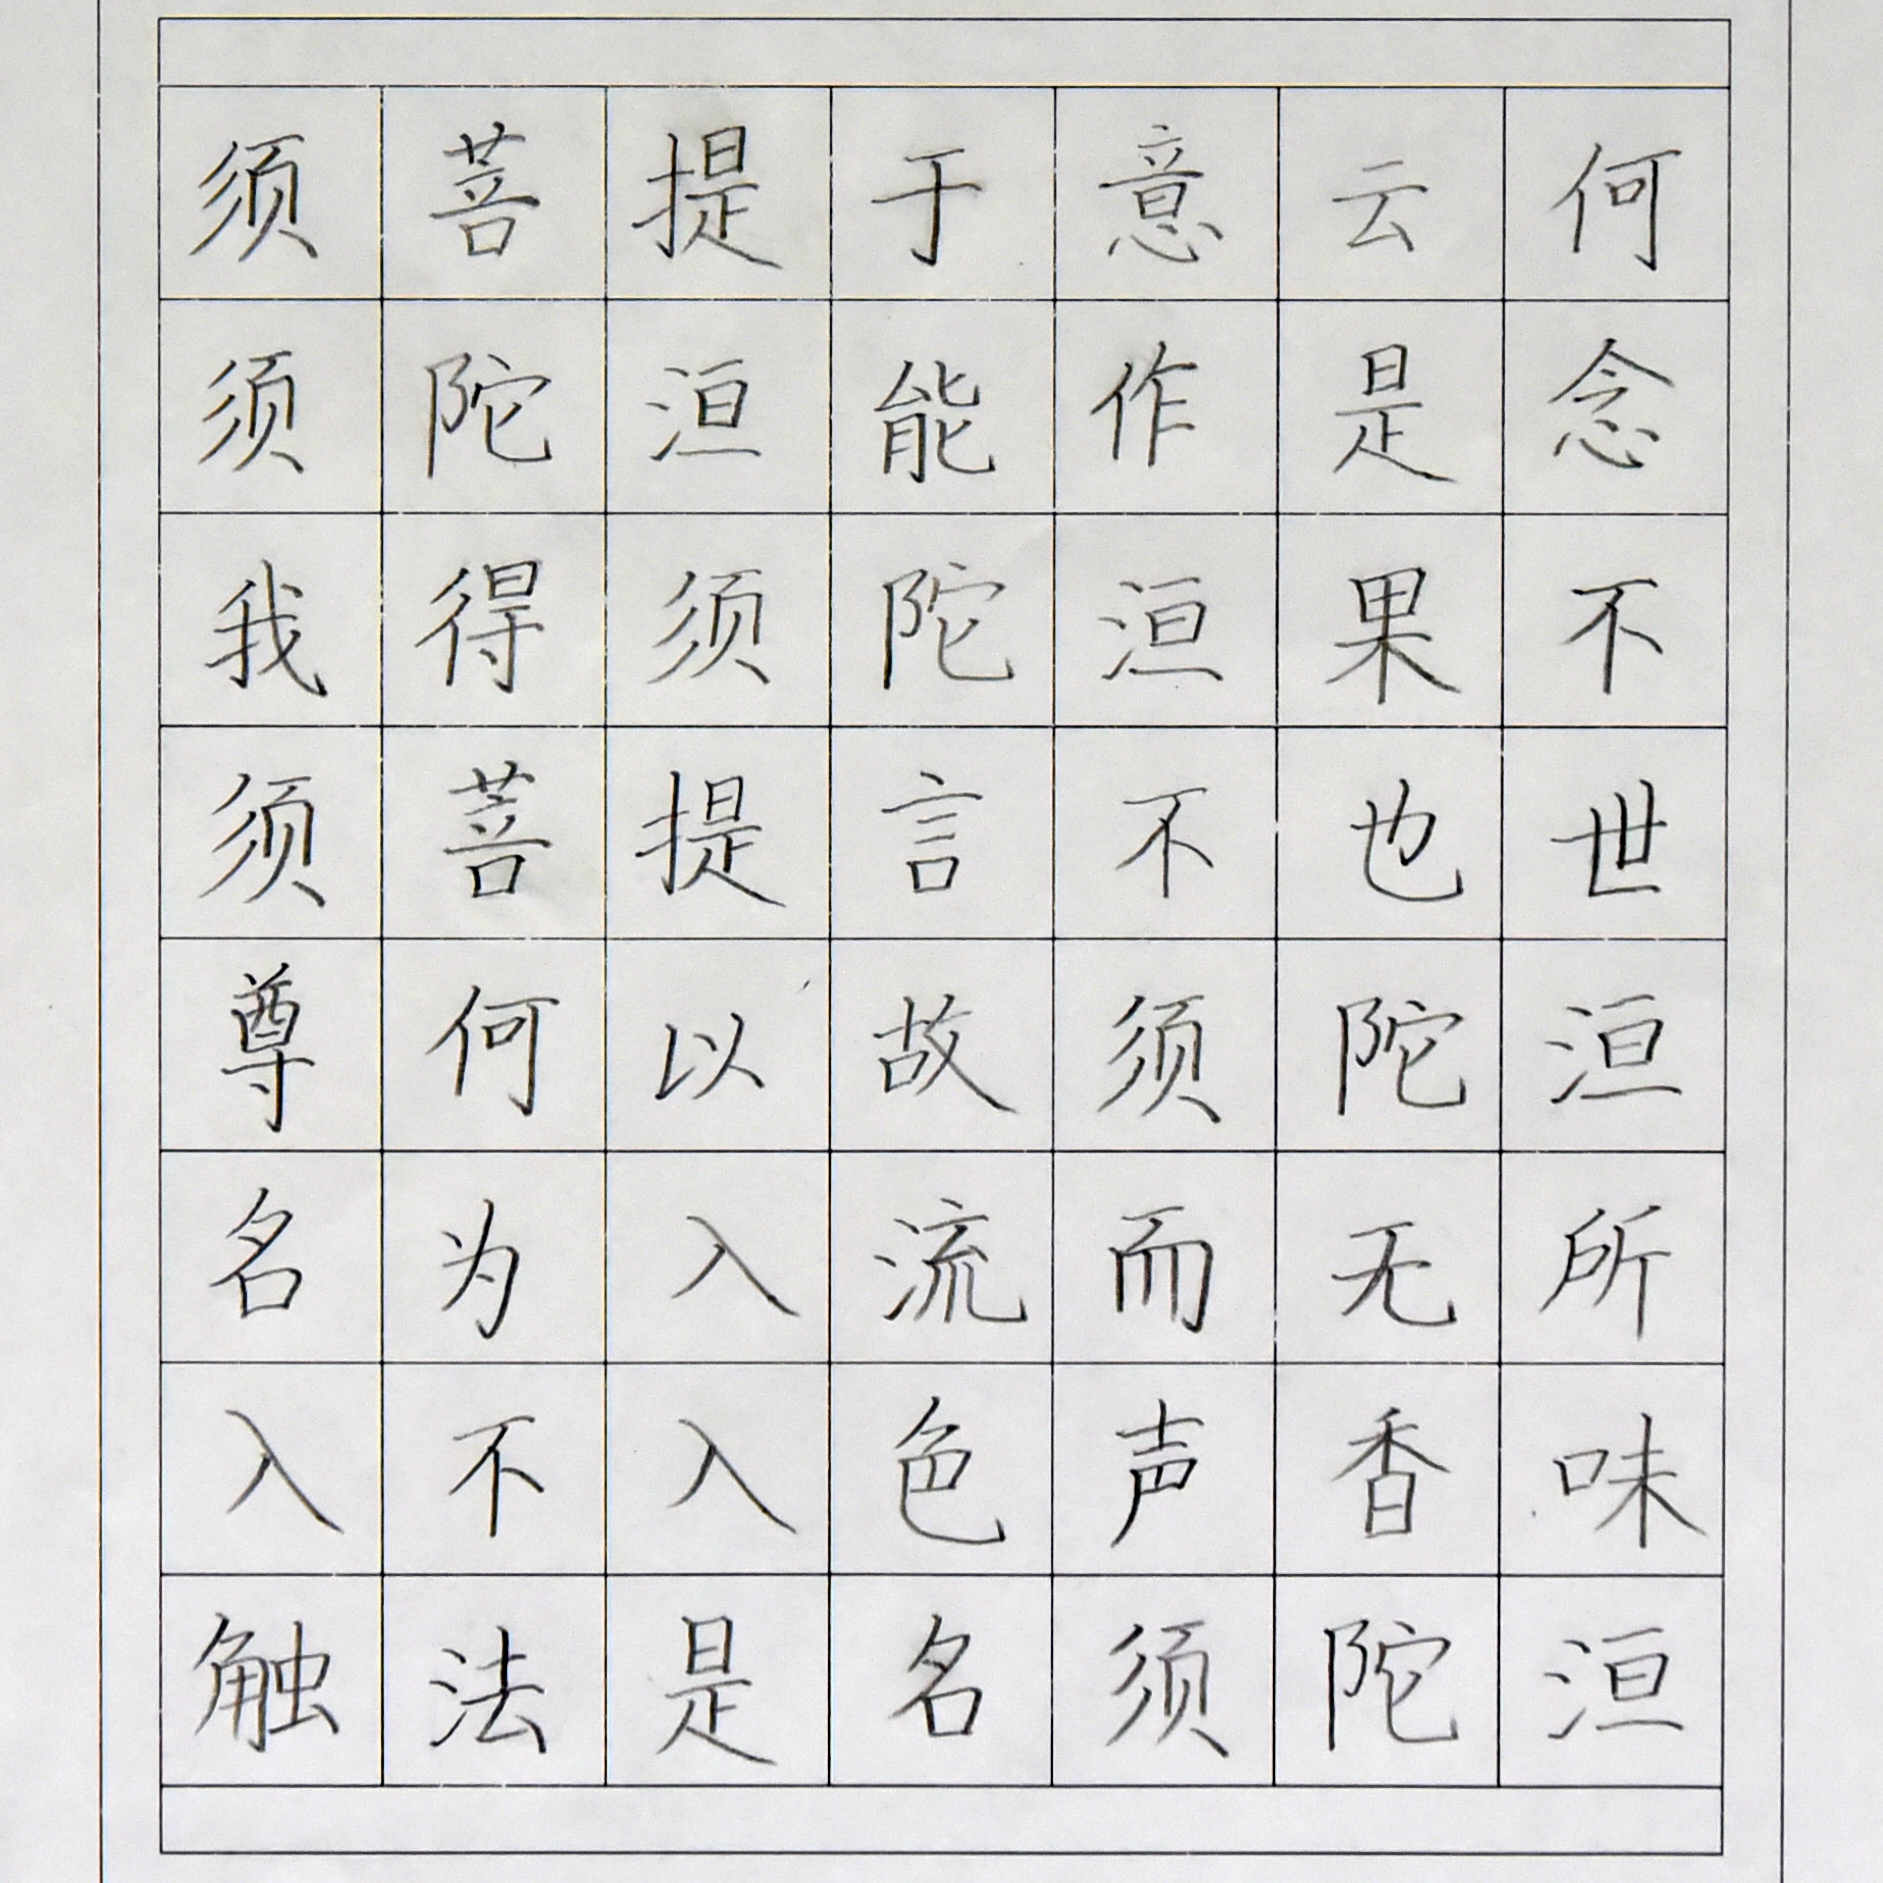 须菩提于意云何
须陀洹能作是念
我得须陀洹果不
须菩提言不也世
尊何以故须陀洹
名为入流而无所
入不入色声香味
触法是名须陀洹